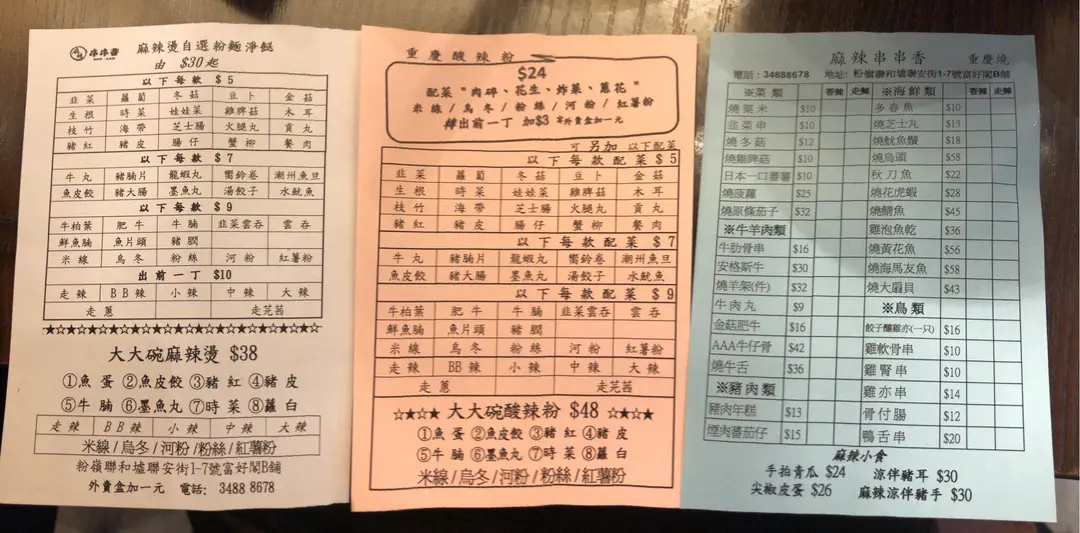 串串香
麻辣燙自選粉麵淨餸
由 $30起
以下每款 $5
韭菜 蘿蔔 冬菇 豆卜 金菇
生根 時菜 娃娃菜 雞脾菇 木耳
枝竹 海帶 芝士腸 火腿丸 貢丸
豬紅 豬皮 腸仔 蟹柳 餐肉
以下每款 $7
牛丸 豬腩片 龍蝦丸 響鈴卷 潮州魚旦
魚皮餃 豬大腸 墨魚丸 湯餃子 水魷魚
以下每款 $9
牛柏葉 肥牛 牛腩 韭菜雲吞 雲吞
鮮魚腩 魚片頭 豬膶
米線 烏冬 粉絲 河粉 紅薯粉
出前一丁 $10
走辣 BB辣 小辣 中辣 大辣
走蔥 走芫茜
大大碗麻辣燙 $38
①魚蛋 ②魚皮餃 ③豬紅 ④豬皮
⑤牛腩 ⑥墨魚丸 ⑦時菜 ⑧蘿白
走辣 BB辣 小辣 中辣 大辣
米線/烏冬/河粉/粉絲/紅薯粉
粉嶺聯和墟聯安街1-7號富好閣B舖
外賣盒加一元 電話: 3488 8678
重慶酸辣粉
$24
配菜"肉碎、花生、炸菜、蔥花"
米線/烏冬/粉絲/河粉/紅薯粉
轉出前一丁 加$3 *外賣盒加一元
可另加以下配菜
以下每款配菜 $5
韭菜 蘿蔔 冬菇 豆卜 金菇
生根 時菜 娃娃菜 雞脾菇 木耳
枝竹 海帶 芝士腸 火腿丸 貢丸
豬紅 豬皮 腸仔 蟹柳 餐肉
以下每款配菜 $7
牛丸 豬腩片 龍蝦丸 響鈴卷 潮州魚旦
魚皮餃 豬大腸 墨魚丸 湯餃子 水魷魚
以下每款配菜 $9
牛柏葉 肥牛 牛腩 韭菜雲吞 雲吞
鮮魚腩 魚片頭 豬膶
米線 烏冬 粉絲 河粉 紅薯粉
走辣 BB辣 小辣 中辣 大辣
走蔥 走芫茜
☆★☆★ 大大碗酸辣粉 $48 ☆★☆★
①魚蛋 ②魚皮餃 ③豬紅 ④豬皮
⑤牛腩 ⑥墨魚丸 ⑦時菜 ⑧蘿白
米線/烏冬/河粉/粉絲/紅薯粉
麻辣串串香 重慶燒
電話:34888678 地址: 粉嶺聯和墟聯安街1-7號富好閣B舖
※菜類 香辣 走辣 ※海鮮類 香辣 走辣
燒粟米 $10 多春魚 $10
韭菜串 $10 燒芝士丸 $13
燒冬菇 $12 燒魷魚鬚 $18
燒雞脾菇 $10 燒烏頭 $58
日本一口蕃薯 $10 秋刀魚 $22
燒菠蘿 $25 燒花虎蝦 $28
燒原條茄子 $32 燒鯖魚 $45
※牛羊肉類 雞泡魚乾 $36
牛肋骨串 $16 燒黃花魚 $56
安格斯牛 $30 燒海馬友魚 $58
燒羊架(件) $32 燒大扇貝 $43
牛肉丸 $9 ※鳥類
金菇肥牛 $16 餃子釀雞亦(一只) $16
AAA牛仔骨 $42 雞軟骨串 $10
燒牛舌 $36 雞腎串 $10
※豬肉類 雞亦串 $14
豬肉年糕 $13 骨付腸 $12
煙肉蕃茄仔 $15 鴨舌串 $20
麻辣小食
手拍青瓜 $24 涼伴豬耳 $30
尖椒皮蛋 $26 麻辣涼伴豬手 $30